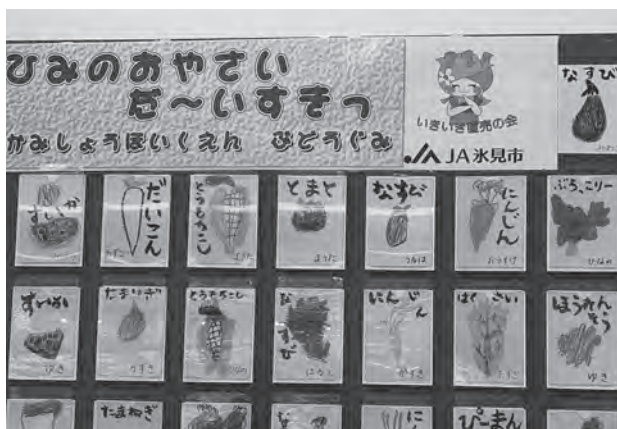 ひみのおやさい
だ～いすきっ
かみしょうほいくえん ぶどうぐみ
いきいき直売の会
JA JA氷見市
なすび
すいか
だいこん
とうもろこし
とまと
なすび
にんじん
ぶろっこりー
すいか
ゆき
たまねぎ
とうもろこし
なすび
にんじん
かずき
はくさい
ほうれんそう
ゆき
たまねぎ
な
に
ぴーまん